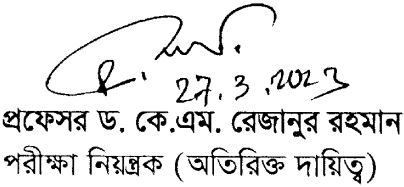 27.3.2023
প্রফেসর ড. কে.এম. রেজানুর রহমান
পরীক্ষা নিয়ন্ত্রক (অতিরিক্ত দায়িত্ব)